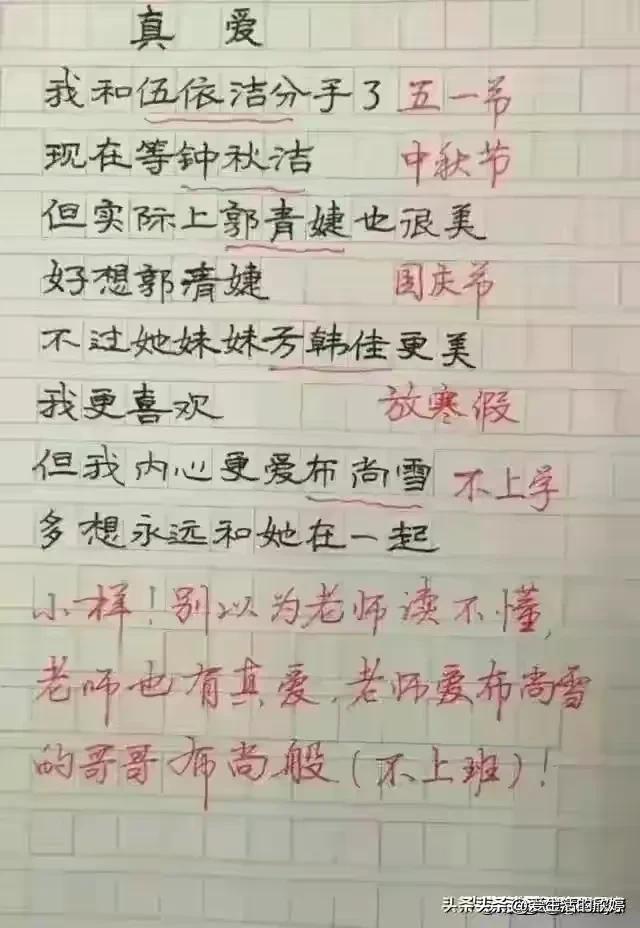 真 爱
我和伍依洁分手了 五一节
现在等钟秋洁 中秋节
但实际上郭青婕也很美
好想郭清婕 国庆节
不过她妹妹方韩佳更美
我更喜欢 放寒假
但我内心更爱布尚雪 不上学
多想永远和她在一起
小样！别以为老师读不懂,
老师也有真爱,老师爱布尚雪
的哥哥布尚般(不上班)！
头条 @爱生活的欣婷